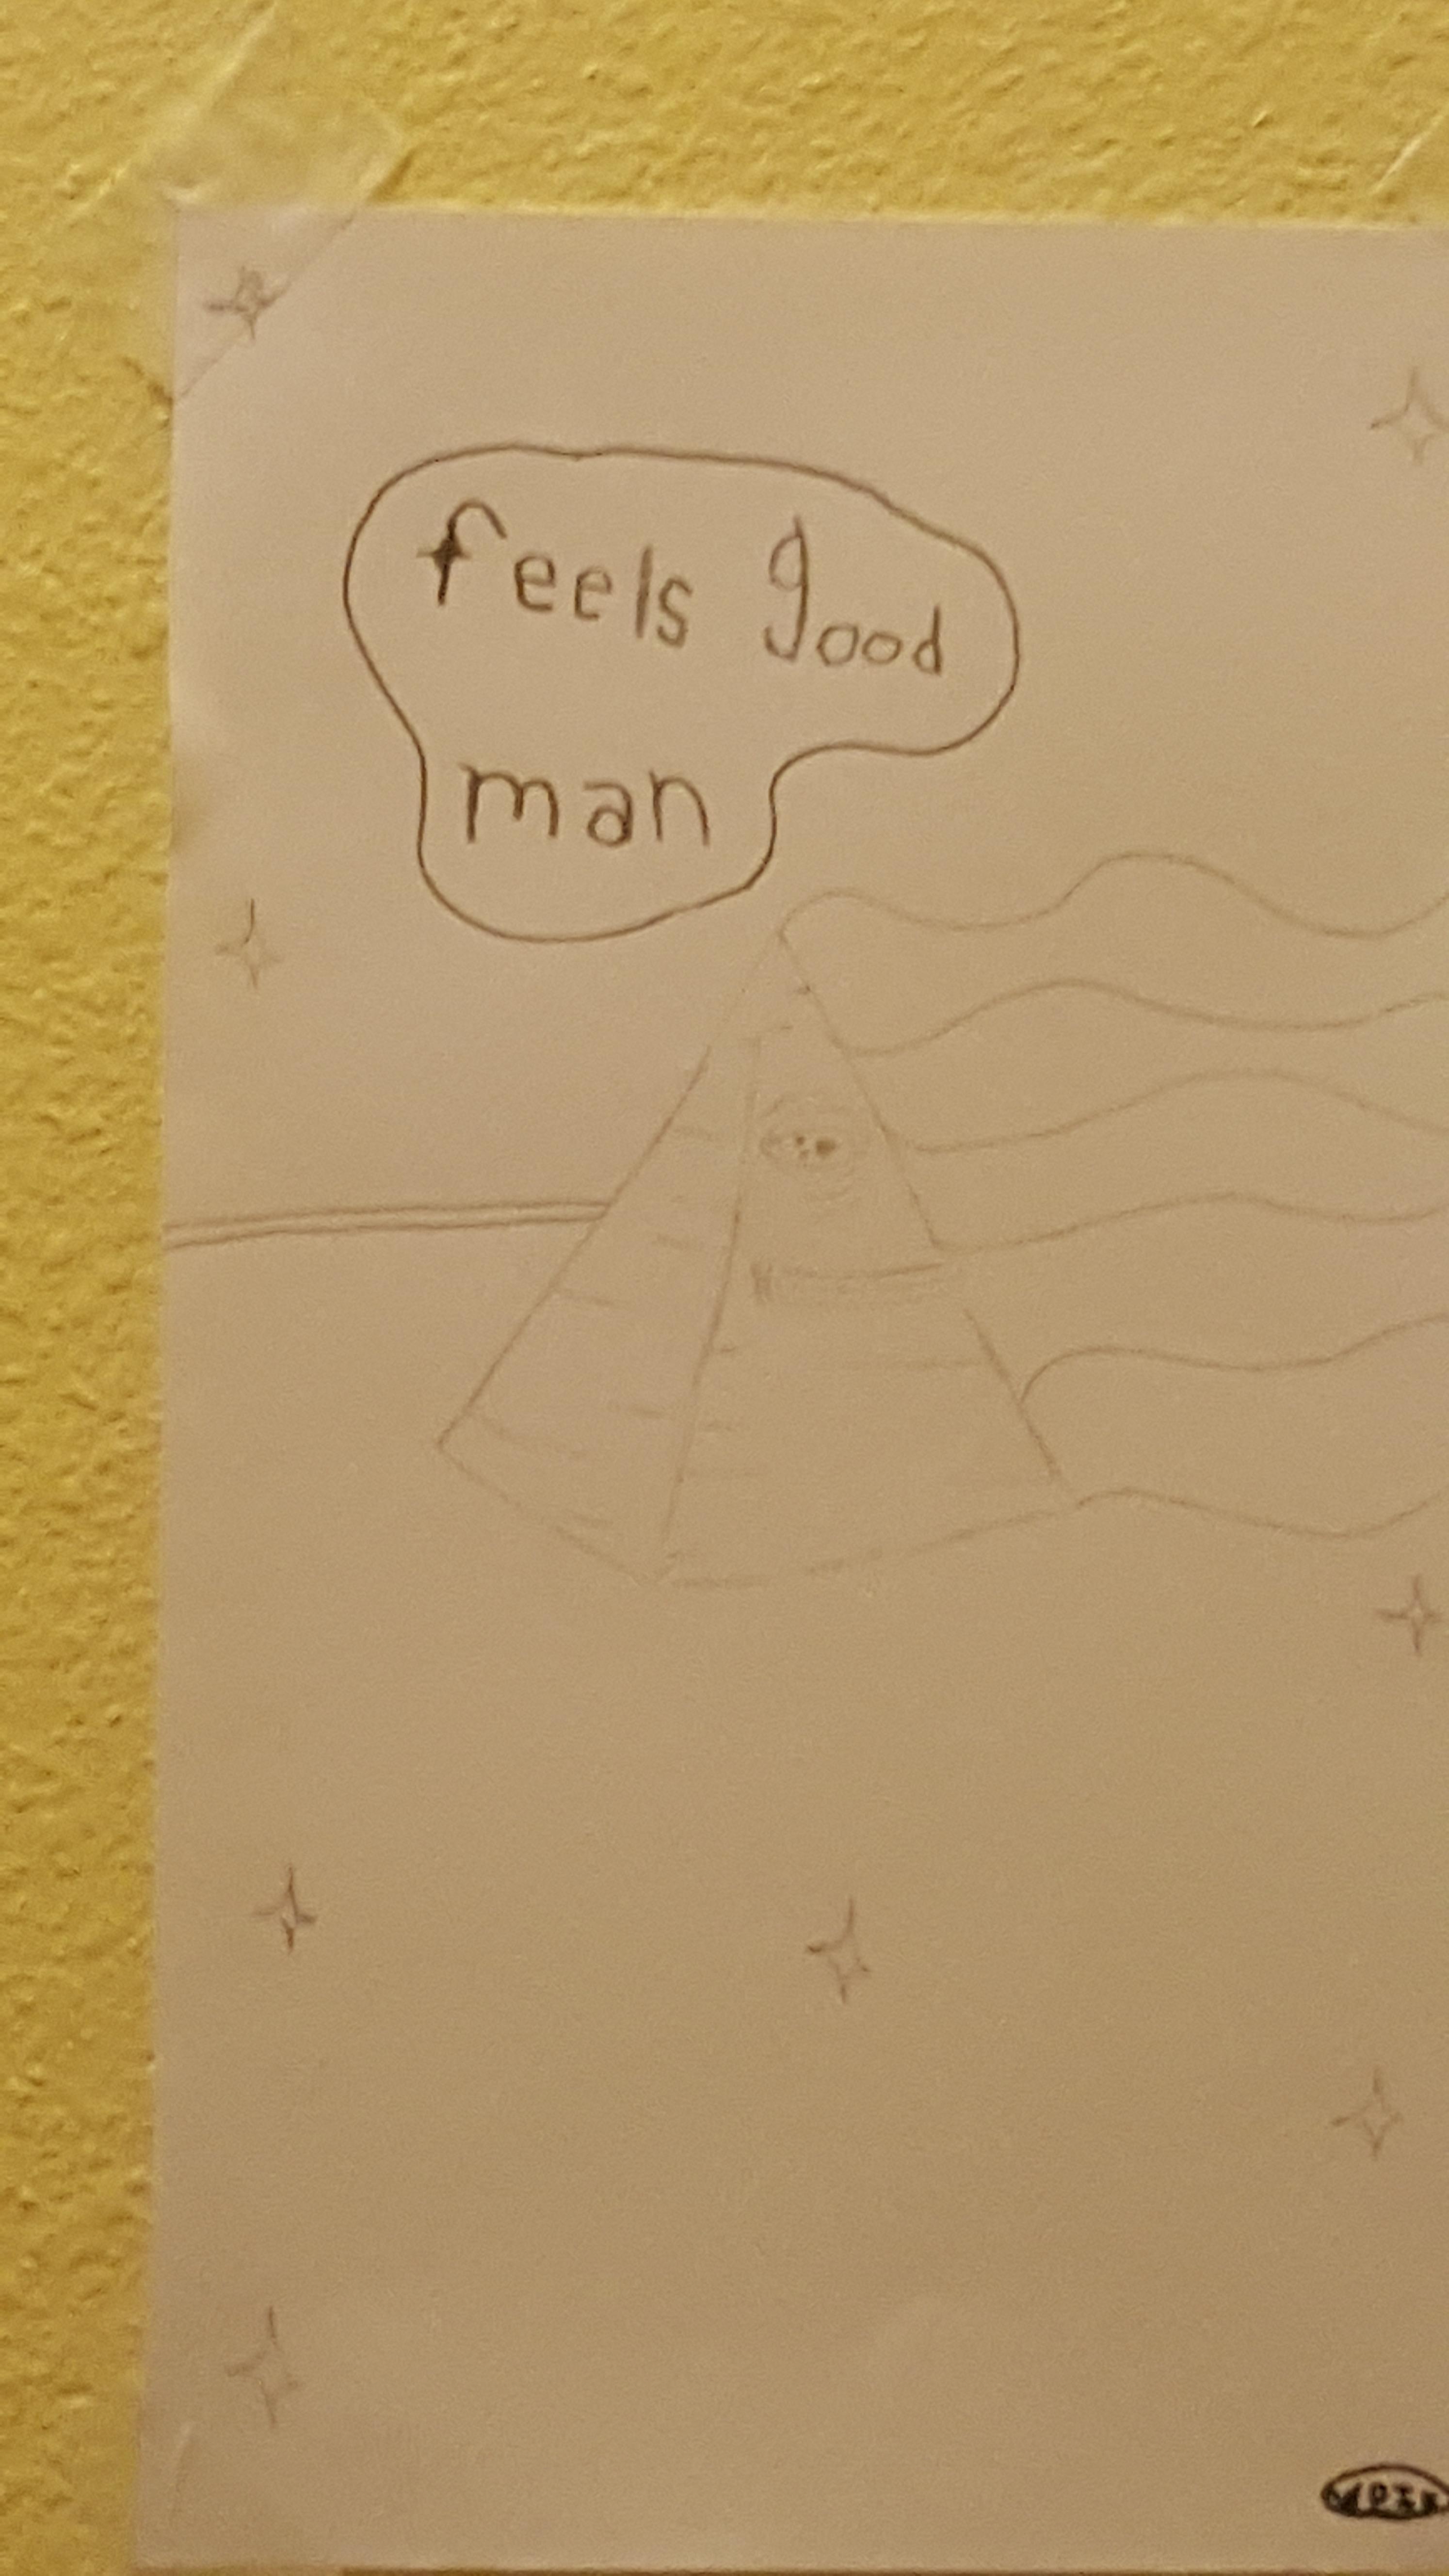 feels good
man